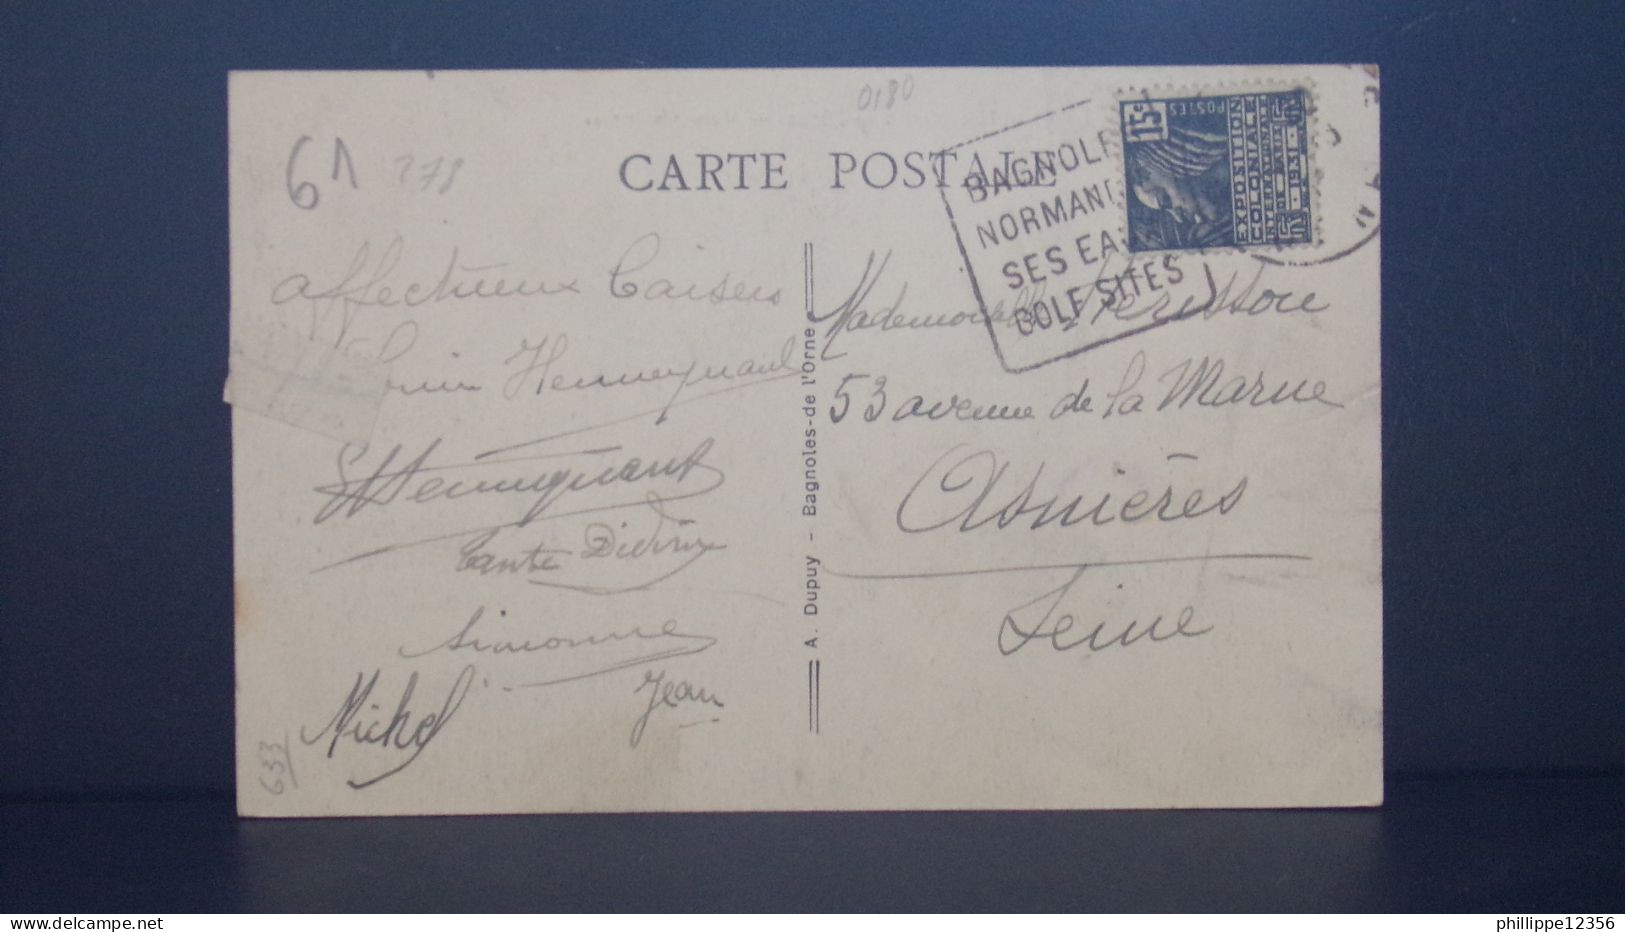 0180
61
278
CARTE POSTALE
BAGNOLE
NORMAN
SES EA
GOLF SITES
15c
POSTES
EXPOSITION
COLONIALE
INTERNATIONALE
DE PARIS
1931
affectueux baisers
Hennequant
Hennequant
Tante Didine
Simonne
Michel
Jean
633
A. Dupuy - Bagnoles-de l'Orne
Mademoiselle
53 avenue de la Marne
Asnières
Seine
delcampe.net
phillippe12356